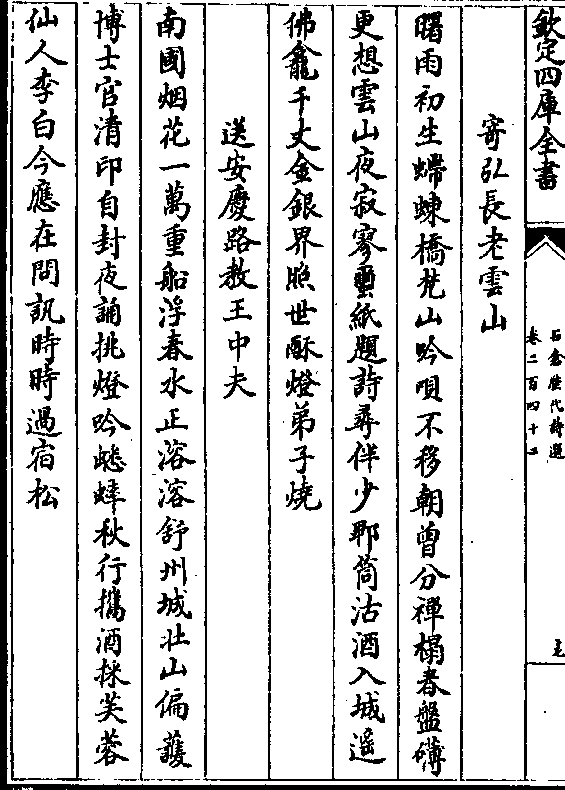 欽定四庫全書
石倉歷代詩選
卷二百四十二
寄弘長老雲山
曙雨初生螮蝀橋梵山吟唄不移朝曾分禪榻春盤礴
更想雲山夜寂寥蠒紙題詩尋伴少郫筒沽酒入城遥
佛龕千丈金銀界照世酥燈弟子燒
送安慶路教王中夫
南國烟花一萬重船浮春水正溶溶舒州城壯山偏䕶
博士官清印自封夜誦挑燈吟蟋蟀秋行攜酒採芙蓉
仙人李白今應在問訊時時過宿松